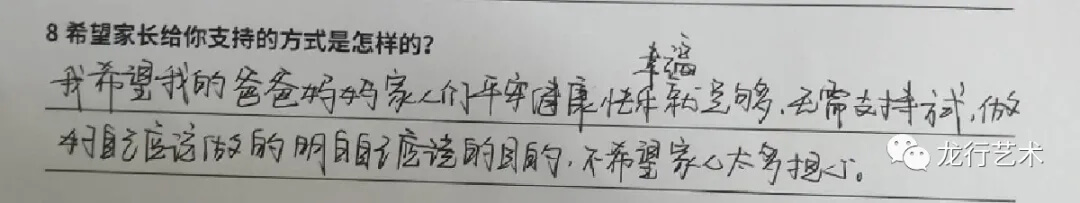 8 希望家长给你支持的方式是怎样的?
幸福
我希望我的爸爸妈妈家人们平安健康快乐就足够,无需支持方式,做
好自己应该做的明自自己应该的目的,不希望家人太多担心。
龙行艺术